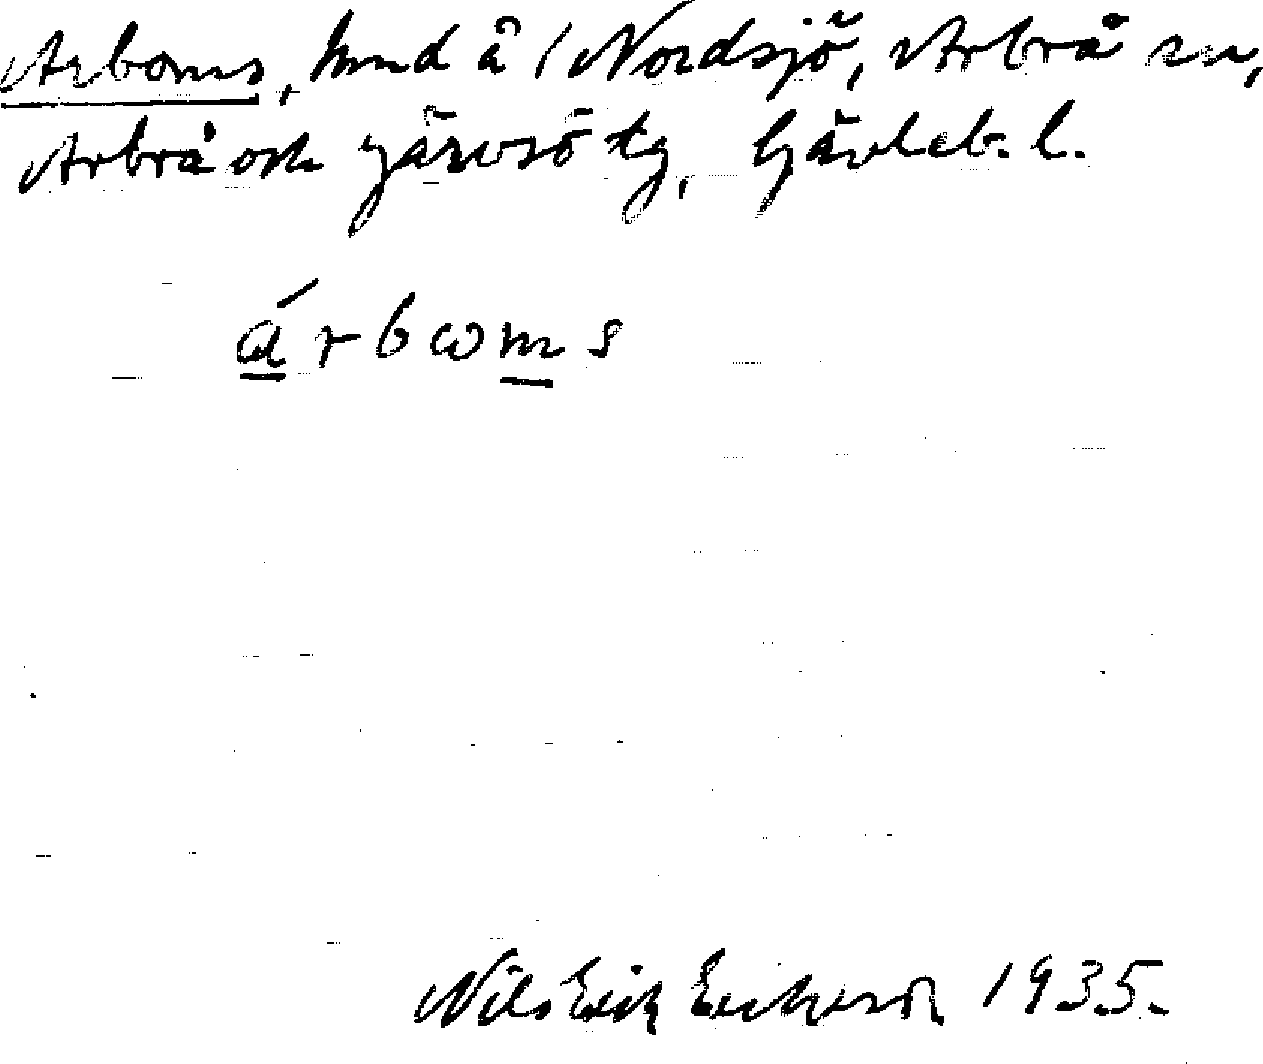 Arboms, hmd å 1 Nordsjö, Arbrå sn,
Arbrå och Järvsö tg, Gävleb. l.
árbωms
Nils Erik Erikson 1935.